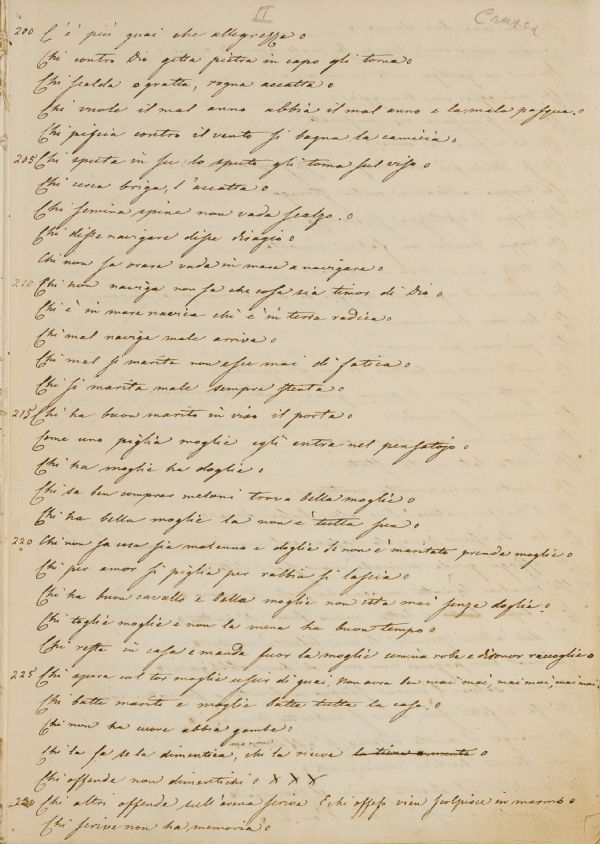 II
Crusca
200 C'è più guai che allegrezze o
Chi contro Dio getta pietra in capo gli torna o
Chi scalda o gratta, rogna accatta o
Chi vuole il mal anno abbia il mal anno e la mala pasqua. o
Chi piscia contro il vento si bagna la camicia o
205 Chi sputa in su lo sputo gli torna sul viso o
Chi cerca briga, l'accatta o
Chi semina spine non vada scalzo. o
Chi disse navigare disse disagio o
Chi non sa orare vada in mare a navigare o
210 Chi non naviga non sa che cosa sia timor di Dio o
Chi è in mare navica chi è in terra radica o
Chi mal naviga male arriva o
Chi mal si marita non esce mai di fatica o
Chi si marita male sempre stenta o
215 Chi ha buon marito in viso il porta o
Come uno piglia moglie egli entra nel pensatojo o
Chi ha moglie ha doglie o
Chi sa ben comprar meloni trova bella moglie o
Chi ha bella moglie la non è tutta sua o
220 Chi non sa cosa sia malanno e doglie se non è maritato prenda moglie o
Chi per amor si piglia per rabbia si lascia o
Chi ha buon cavallo e bella moglie non ista mai senza doglie. o
Chi toglie moglie e non la mena ha buon tempo o
Chi resta in casa e manda fuor la moglie semina roba e disonor raccoglie o
225 Chi spera col tor moglie uscir di guai, Non avra ben mai mai, mai mai, mai mai
Chi batte marito e moglie batte tutta la casa. o
Chi non ha cuore abbia gambe o
Chi la fa se la dimentica, ma non chi la riceve la tiene a mente o
Chi offende non dimentichi o X X X
230 Chi altri offende sull'arena scrive E chi offeso vien scolpisce in marmo o
Chi scrive non ha memoria o